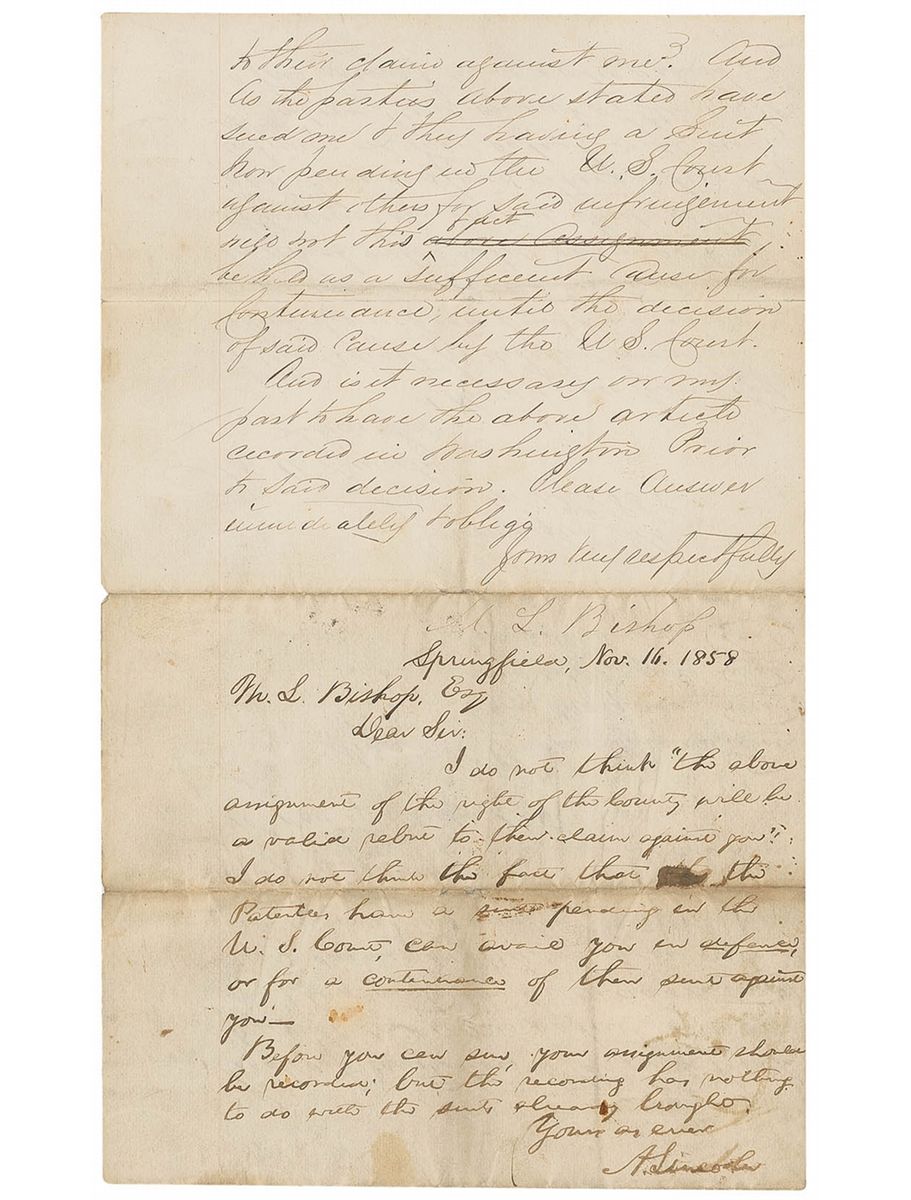 to their claim against me? And
As the parties above stated have
sued me & they having a Suit
Now pending in the U. S. Court
against others for said infringement
will not this fact above assignment
be held as a sufficent cause for
Continuance, until the decision
of said cause by the U S. Court.
And is it necessary on my
part to have the above article
recorded in Washington Prior
to said decision. Please Answer
immediately & oblige
Yours Very respectfully
M. L. Bishop
Springfield, Nov. 16. 1858
M. L. Bishop, Esq
Dear Sir:
I do not think "the above
assignment of the right of the County will be
a valid rebut to their claim against you":
I do not think the fact that the
Patentees have a suit pending in the
U. S. Court, can avail you in defence,
or for a continuance of their suit against
you—
Before you can sue, your assignment should
be recorded; but the recording has nothing
to do with the suits already brought.
Yours as ever
A. Lincoln